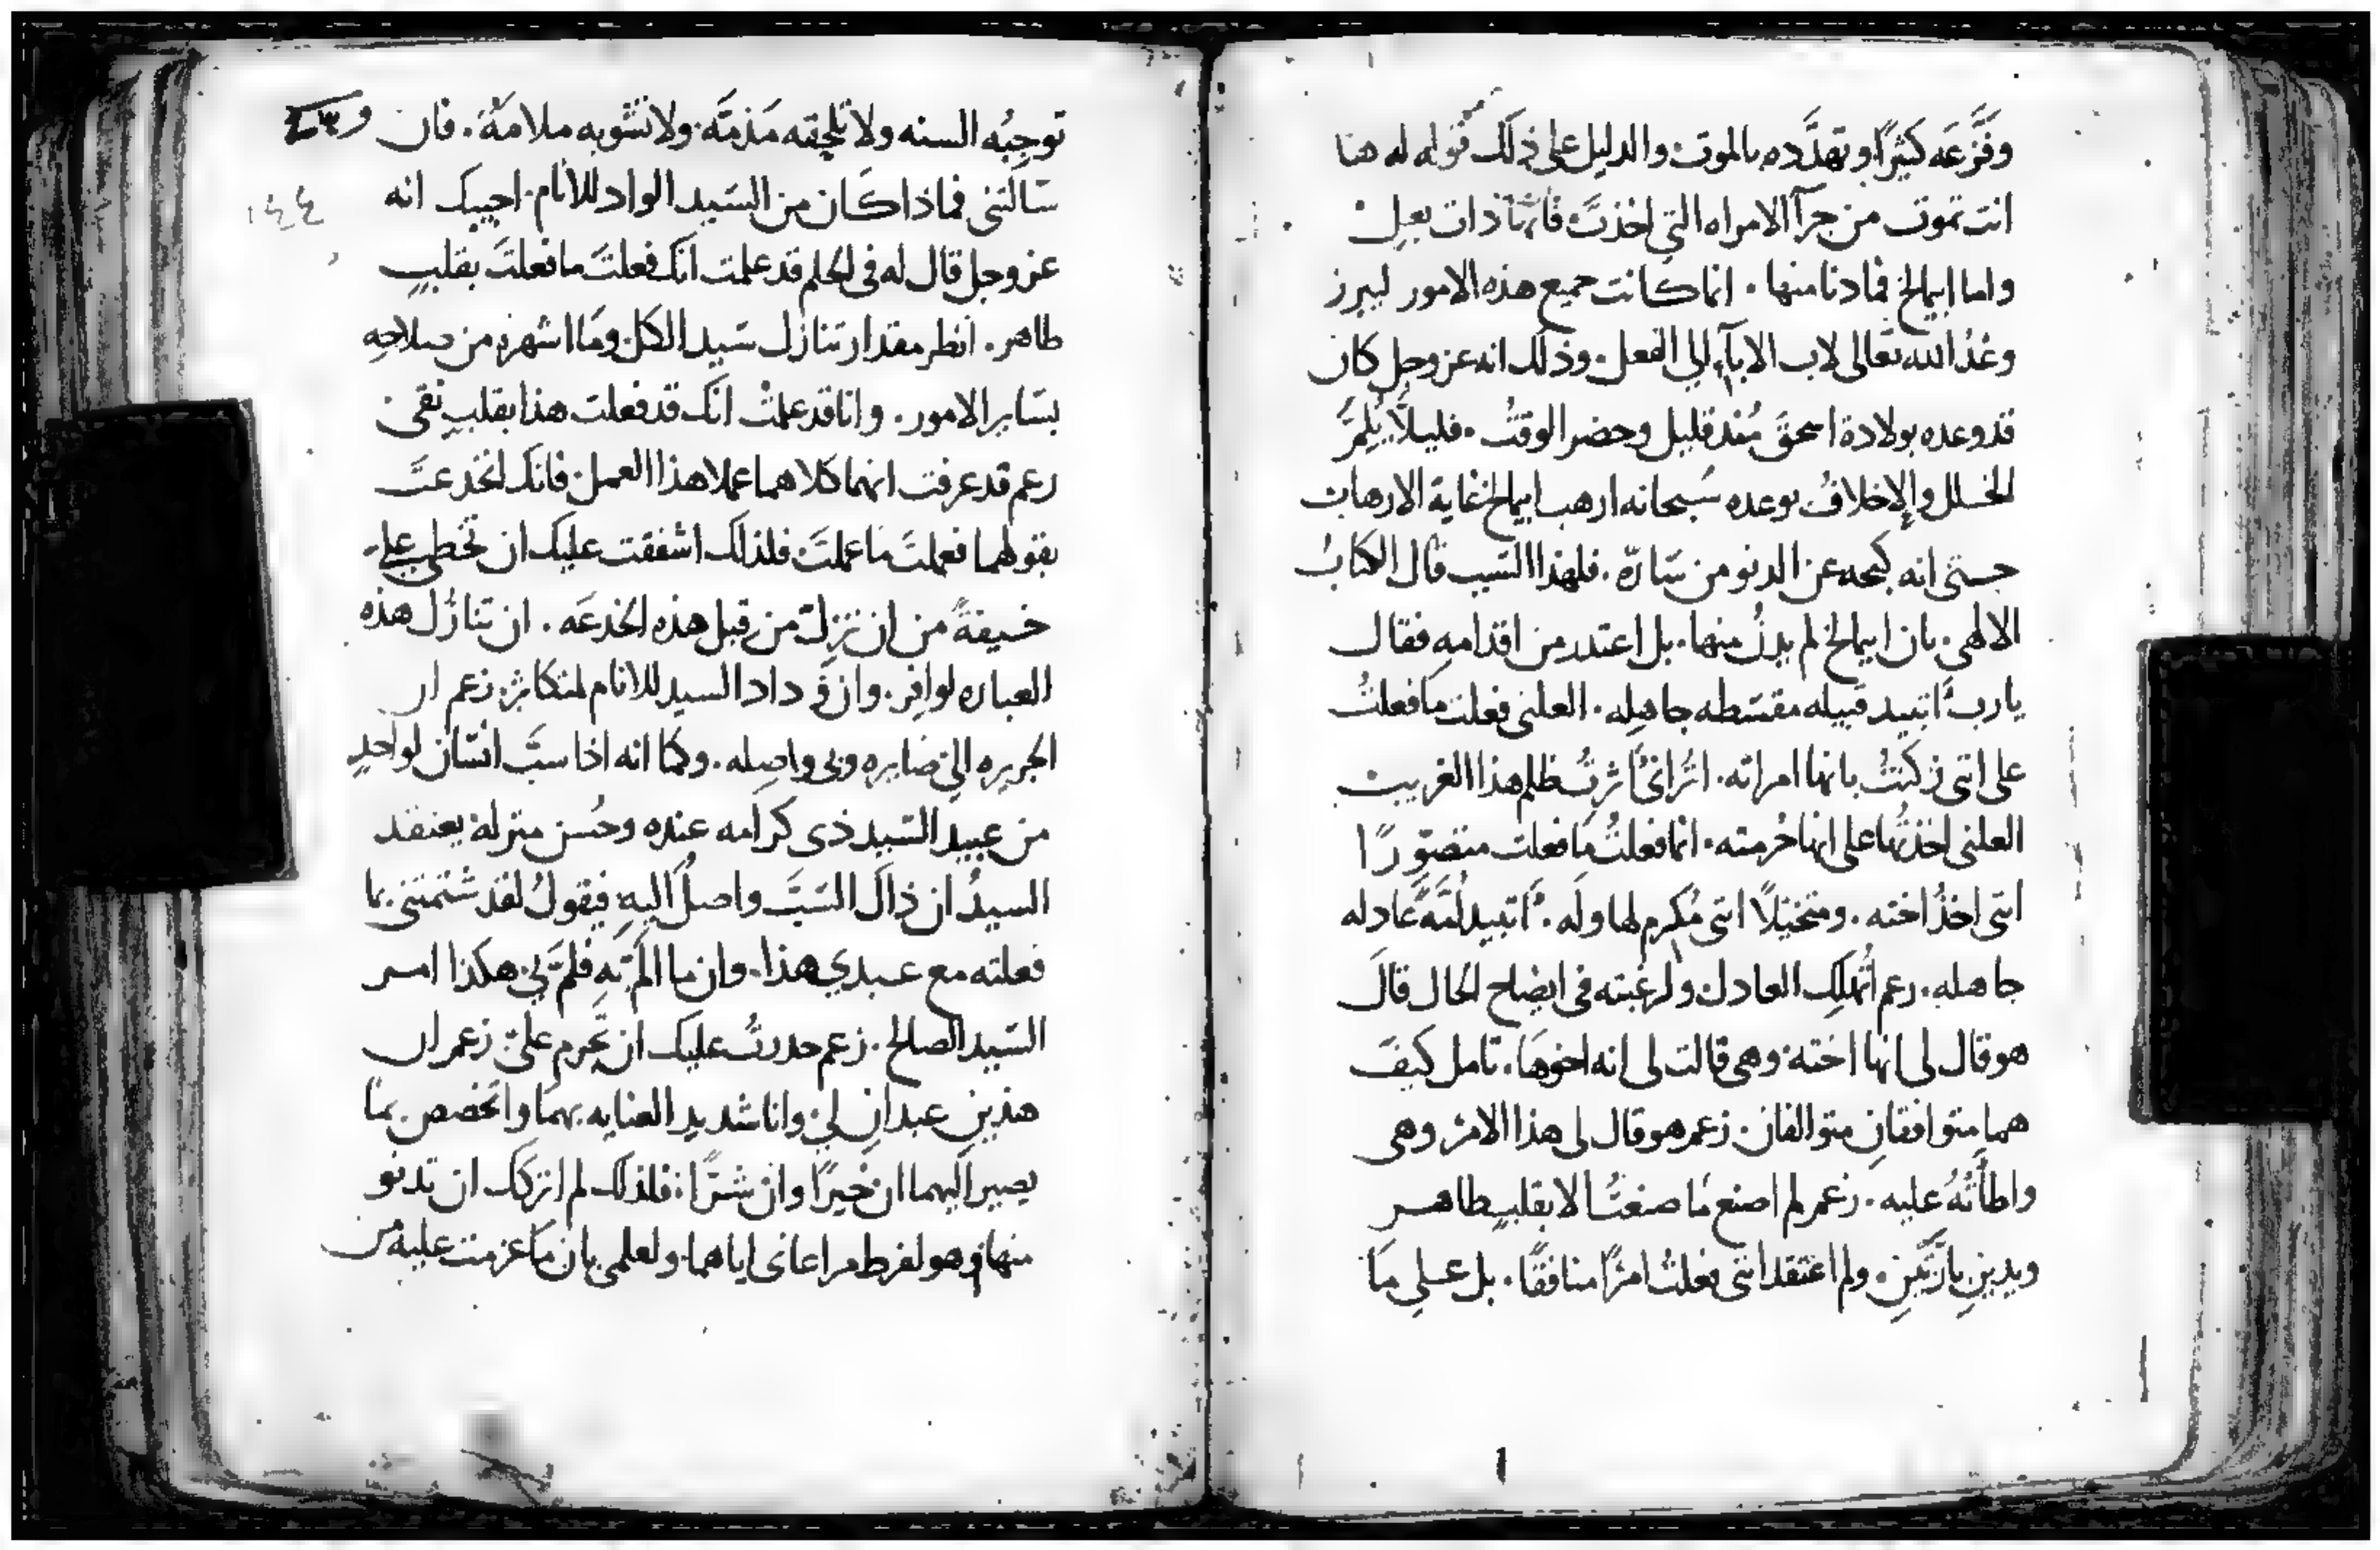 وفَزَّعَه كثيرًا وتهدَّده بالموت والدليل على ذلك قوله له ها
انت تموت من جرآ الامراه التي اخذتَ فانها ذات بعلٍ
واما ابيمالخ فما دنا منها . انما كانت جميع هذه الامور ليبرز
وعْدُ الله تعالى لاب الابآ الي الفعل . وذلك انه عز وجل كان
قد وعده بولادة اسحقَ مُند قليل وحضر الوقتُ . فليلاَّ يُلِمَّ
الخلل والإخلافُ بوعده سُبحانه ارهب ابيمالخ غاية الارهاب
حتى انه كبحه عن الدنو من سَارّه . فلهذا السَبب قال الكتابُ
الالهي . بان ابيمالخ لم يدنُ منها . بل اعتدر من اقدامهِ فقال
يا ربُّ اتبيد قبيله مقسَطه جاهِله . العلنى فعلت ما فعلتُ
على اننى زكنتُ بانها امراته . اتُرانى آثرتُ ظلم هذا الغريب
العلنى اخذتُها على انها حُرمته . انما فعلتُ ما فعلت متصّورًا
اننى اخذُ اخته . ومتخيّلاً اننى مُكرم لها وله . أتبيد اُمَّةً عادله
جاهله . زعم اتُهلِك العادل ولرغبته في ايضاح الحال قالَ
هو قال لى انها اخته وهى قالت لى انه اخوهَا . تامل كيفَ
هما متوافقانِ متوالفان . زعم هو قال لى هذا الامرَ وهى
واطأَتهُ عليه . زعم لم اصنع مَا صنعتُ الا بقلبٍ طاهر
ويدينِ بارّتَينِ . ولم اعتقد اننى فعلتُ امرًا منافقًا . بل على مَا
توجبُه السنه ولا تلحِقه مَذمَّه ولا تشوبه ملامَة . فان
سَالتنى فماذا كَان من السَيد الواد للانام . اجيبك انه
عز وجل قال له فى الحلم قد علمت انك فعلتَ ما فعلتَ بقلبٍ
طاهر . انظر مقدار تنازل سَيد الكل ومَا اشهره من صلاحِهِ
بسَاير الامور . وانا قد علمتُ انك قد فعلت هذا بقلبٍ نقى
زعم قد عرفت انهما كلاهما عملا هذا العمل فانك انخدعتَ
بقولهما فعملتَ ما عملتَ فلذلك اشفقت عليك ان تخطى علي
خيفةً من ان تزل من قبل هذه الخدعَه . ان تنازُل هذه
العباره لوافر . وان وداد السيد للانام لمتكاثر زعم ان
الجريره الىّ صايره وبى واصِله . وكما انه اذا سبَّ انسَان لواحدٍ
من عبيد السَيد ذى كرامه عنده وحُسن منزله يعتقد
السيدُ ان ذاك السَبَّ واصلٌ اليهِ فيقولُ لقد شتمتنى بما
فعلته مع عبدي هذا . وان ما المّ بهِ فلمّ بي هكذا امر
السَيد الصالح . زعم حدرتُ عليك ان تجرم علىّ زعم ان
هذينِ عبدانِ لي وانا شديد العنايه بهمَا واتخصص بمَا
يصير اليهما ان خيرًا وان شرّا . فلذلك لم اتركك ان تدنو
منها وهو لفرط مراعاتى اياهما ولعلمى بان ما عزمت عليهْ من
١٤٤